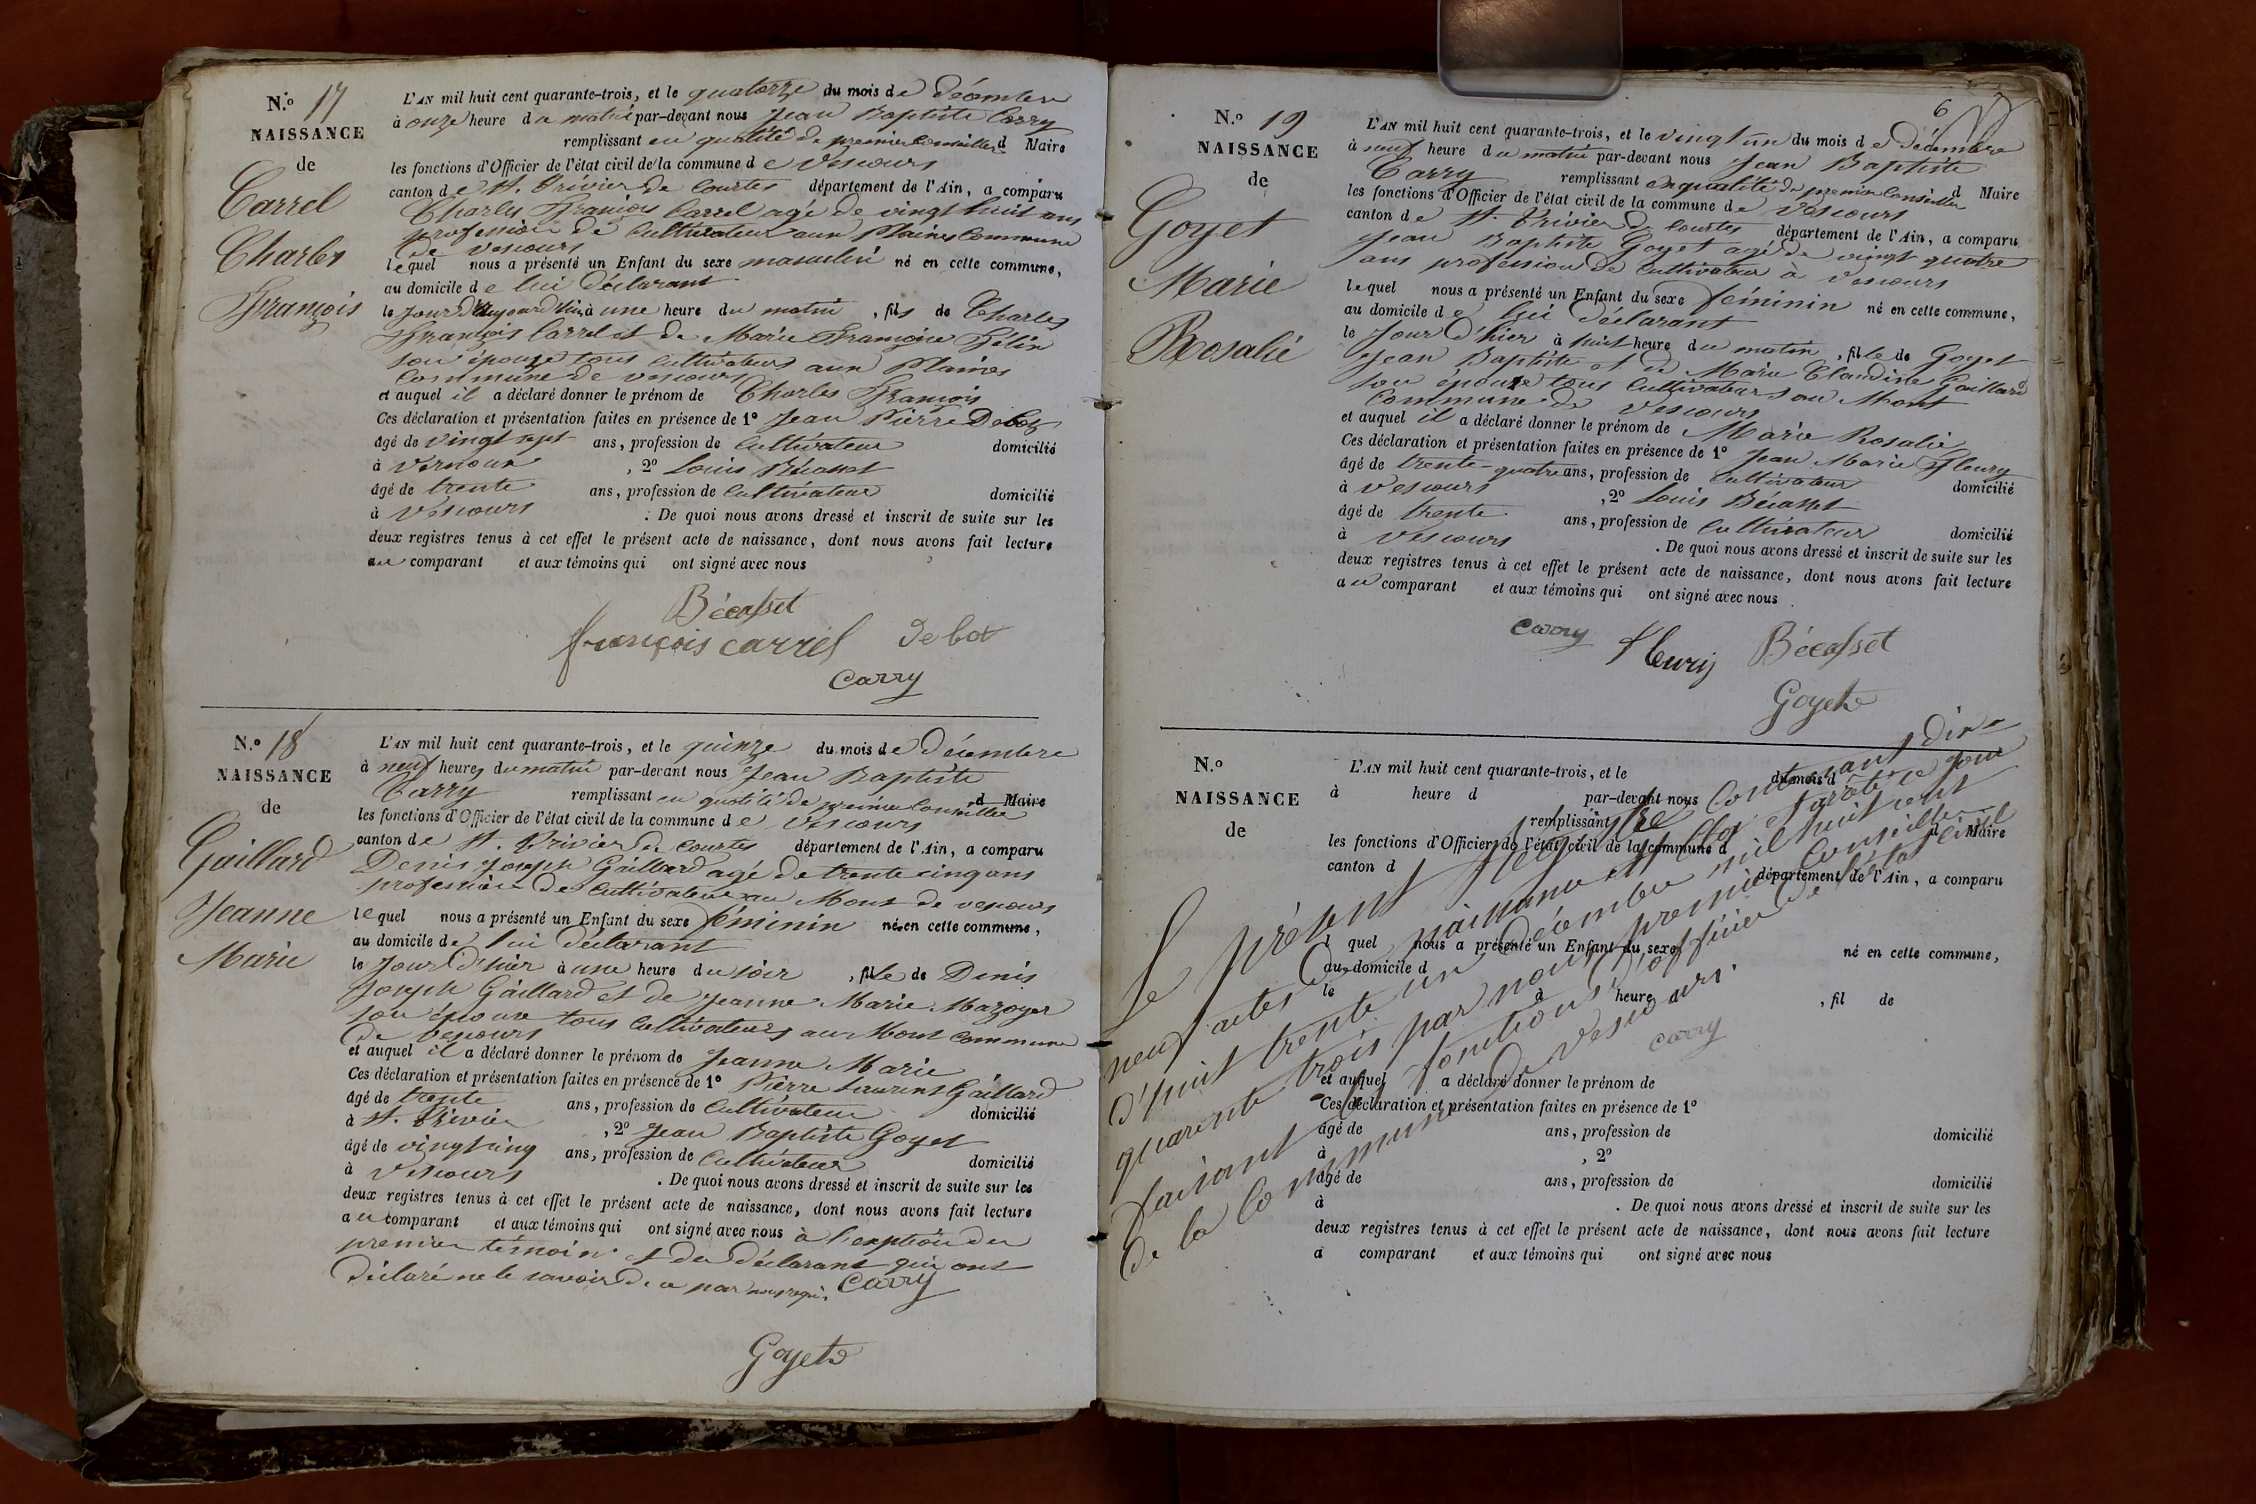 N.º 17
NAISSANCE
de
Carrel
Charles
François
L'AN mil huit cent quarante-trois, et le quatorze du mois de décembre
à onze heure du matin par-devant nous Jean Baptiste Carry
remplissant en qualité de premier Conseiller d Maire
les fonctions d'Officier de l'état civil de la commune de Vescours
canton de St. Trivier de Courtes département de l'Ain, a comparu
Charles François Carrel agé de vingt huit ans
profession de Cultivateur aux Plaines Commune
de Vescours
lequel nous a présenté un Enfant du sexe masculin né en cette commune,
au domicile de lui Déclarant
le Jour d'aujourd'hui à une heure du matin, fils de Charles
François Carrel et de Marie Françoise Félix
son épouse tous cultivateurs aux Plaines
Commune de Vescours
et auquel il a déclaré donner le prénom de Charles François
Ces déclaration et présentation faites en présence de 1º Jean Pierre Debot
âgé de vingt sept ans, profession de Cultivateur domicilié
à Vernoux, 2º Louis Bécasset
âgé de trente ans, profession de Cultivateur domicilié
à Vescours. De quoi nous avons dressé et inscrit de suite sur les
deux registres tenus à cet effet le présent acte de naissance, dont nous avons fait lecture
au comparant et aux témoins qui ont signé avec nous
Bécasset
françois carrel Debot
Carry
N.º 18
NAISSANCE
de
Gaillard
Jeanne
Marie
L'AN mil huit cent quarante-trois, et le quinze du mois de Décembre
à neuf heures du matin par-devant nous Jean Baptiste
Carry remplissant en qualité de premier Conseiller d Maire
les fonctions d'Officier de l'état civil de la commune de Vescours
canton de St. Trivier de Courtes département de l'Ain, a comparu
Denis Joseph Gaillard agé de trente cinq ans
profession de Cultivateur au Mont de Vescours
lequel nous a présenté un Enfant du sexe féminin né en cette commune,
au domicile de lui Déclarant
le Jour d'hier à une heure du soir, fille de Denis
Joseph Gaillard et de Jeanne Marie Mazoyer
son épouse tous Cultivateurs au Mont Commune
de Vescours
et auquel il a déclaré donner le prénom de Jeanne Marie
Ces déclaration et présentation faites en présence de 1º Pierre Laurent Gaillard
âgé de trente ans, profession de Cultivateur domicilié
à St. Trivier, 2º Jean Baptiste Goyet
âgé de vingt cinq ans, profession de Cultivateur domicilié
à Vescours. De quoi nous avons dressé et inscrit de suite sur les
deux registres tenus à cet effet le présent acte de naissance, dont nous avons fait lecture
au comparant et aux témoins qui ont signé avec nous à l'exception du
premier témoin et du déclarant qui ont
déclaré ne le savoir de ce par nous requis Carry
Goyet
6
N.º 19
NAISSANCE
de
Goyet
Marie
Rosalie
L'AN mil huit cent quarante-trois, et le vingt un du mois de Décembre
à neuf heure du matin par-devant nous Jean Baptiste
Carry remplissant en qualité de premier Conseiller d Maire
les fonctions d'Officier de l'état civil de la commune de Vescours
canton de St. Trivier de Courtes département de l'Ain, a comparu
Jean Baptiste Goyet agé de vingt quatre
ans profession de Cultivateur à Vescours
lequel nous a présenté un Enfant du sexe féminin né en cette commune,
au domicile de lui Déclarant
le Jour d'hier à huit heure du matin, fille de Goyet
Jean Baptiste et de Marie Claudine Gaillard
son épouse tous Cultivateurs au Mont
Commune de Vescours
et auquel il a déclaré donner le prénom de Marie Rosalie
Ces déclaration et présentation faites en présence de 1º Jean Marie Fleury
âgé de trente-quatre ans, profession de Cultivateur domicilié
à Vescours, 2º Louis Bécasset
âgé de trente ans, profession de Cultivateur domicilié
à Vescours. De quoi nous avons dressé et inscrit de suite sur les
deux registres tenus à cet effet le présent acte de naissance, dont nous avons fait lecture
au comparant et aux témoins qui ont signé avec nous.
Carry Fleury Bécasset
Goyet
N.º
NAISSANCE
de
L'AN mil huit cent quarante-trois, et le du mois d
à heure d par-devant nous
remplissant d Maire
les fonctions d'Officier de l'état civil de la commune d
canton d département de l'Ain, a comparu
quel nous a présenté un Enfant du sexe né en cette commune,
au domicile d
le à heure d, fil de
et auquel a déclaré donner le prénom de
Ces déclaration et présentation faites en présence de 1º
âgé de ans, profession de domicilié
à, 2º
âgé de ans, profession de domicilié
à. De quoi nous avons dressé et inscrit de suite sur les
deux registres tenus à cet effet le présent acte de naissance, dont nous avons fait lecture
a comparant et aux témoins qui ont signé avec nous
Le présent registre contenant dix
neuf actes de naissance est clos et arrêté ce jour
d'huit trente un décembre mil huit cent
quarante trois par nous premier Conseiller
faisant les fonctions d'officier de l'état civil
de la Commune de Vescours.
Carry